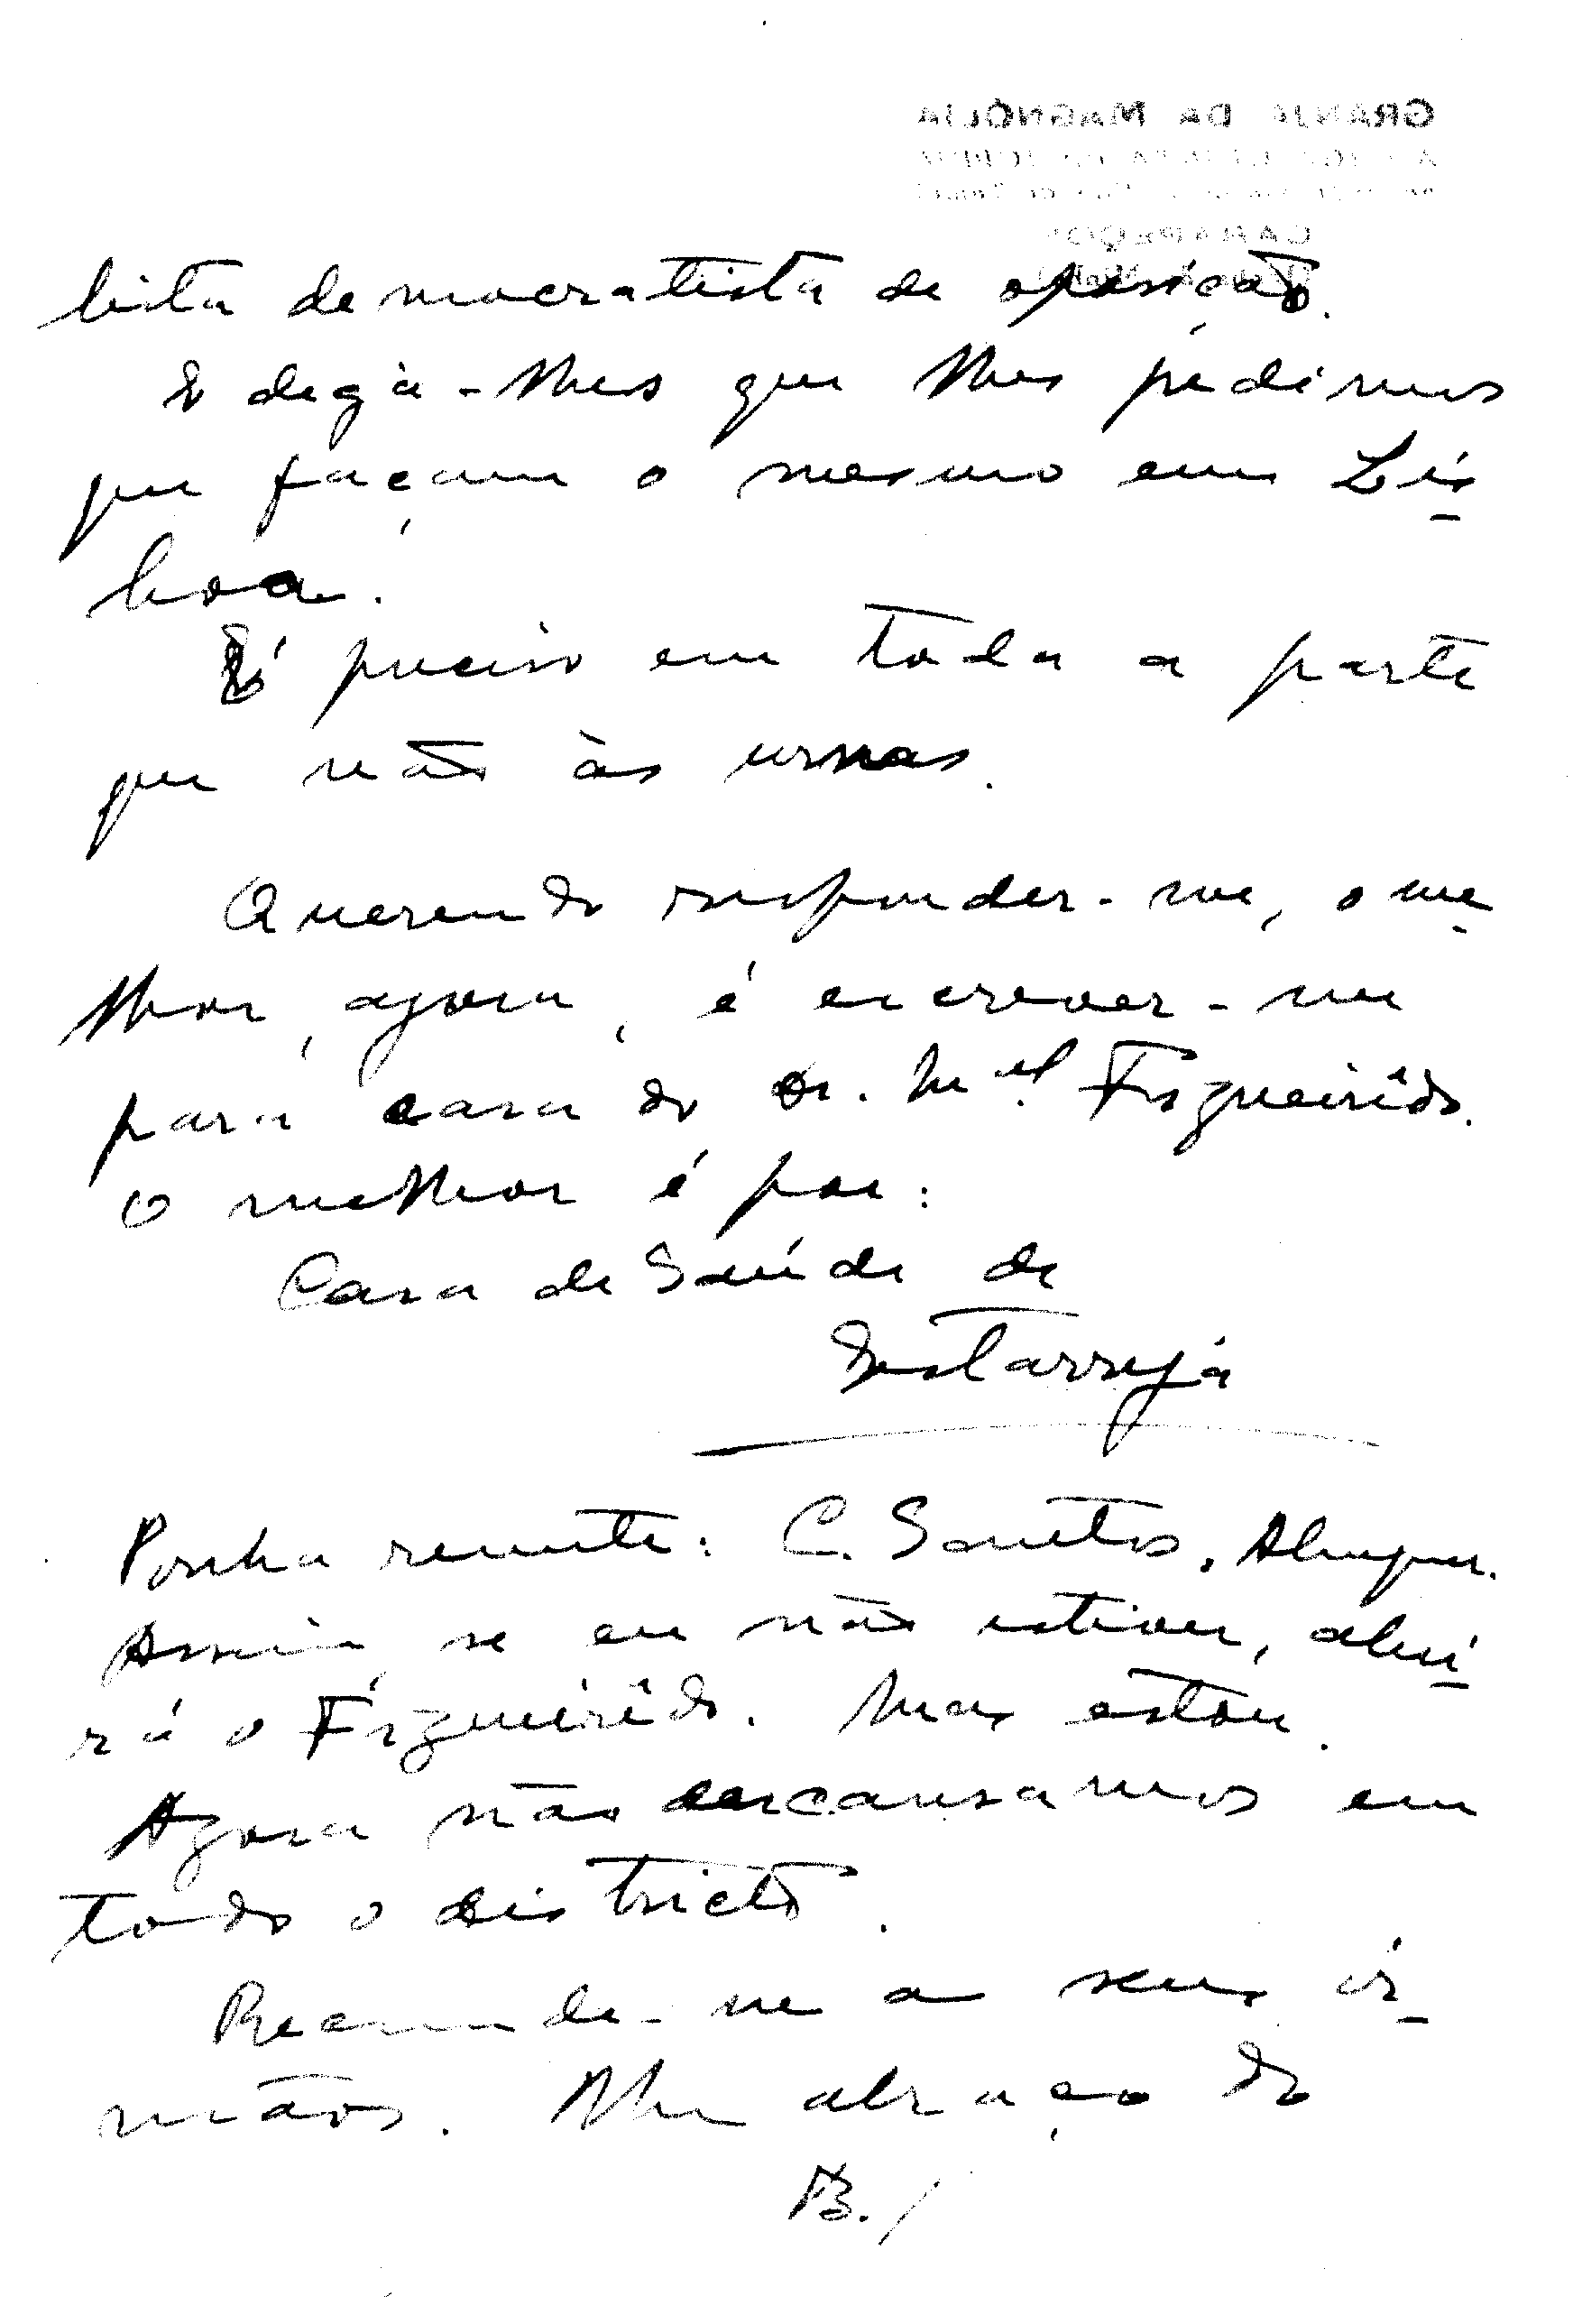 GRANJA DA MAGNÓLIA
lista democratista de oposição.
E diga-lhes que lhes pedimos
que façam o mesmo em Lis-
boa.
É preciso em toda a parte
que vão às urnas.
Querendo responder-me, o me-
lhor, agora, é escrever-me
para casa do Dr. Mel Figueirêdo.
O melhor é por:
Casa de Saúde de
Estarreja
Ponha remete: C. Santos.
Assim, se eu não estiver, abri-
rá o Figueirêdo. Mas estou.
Agora não descansamos em
todo o districto.
Recomende-me a seus ir-
mãos. Um abraço do
B./